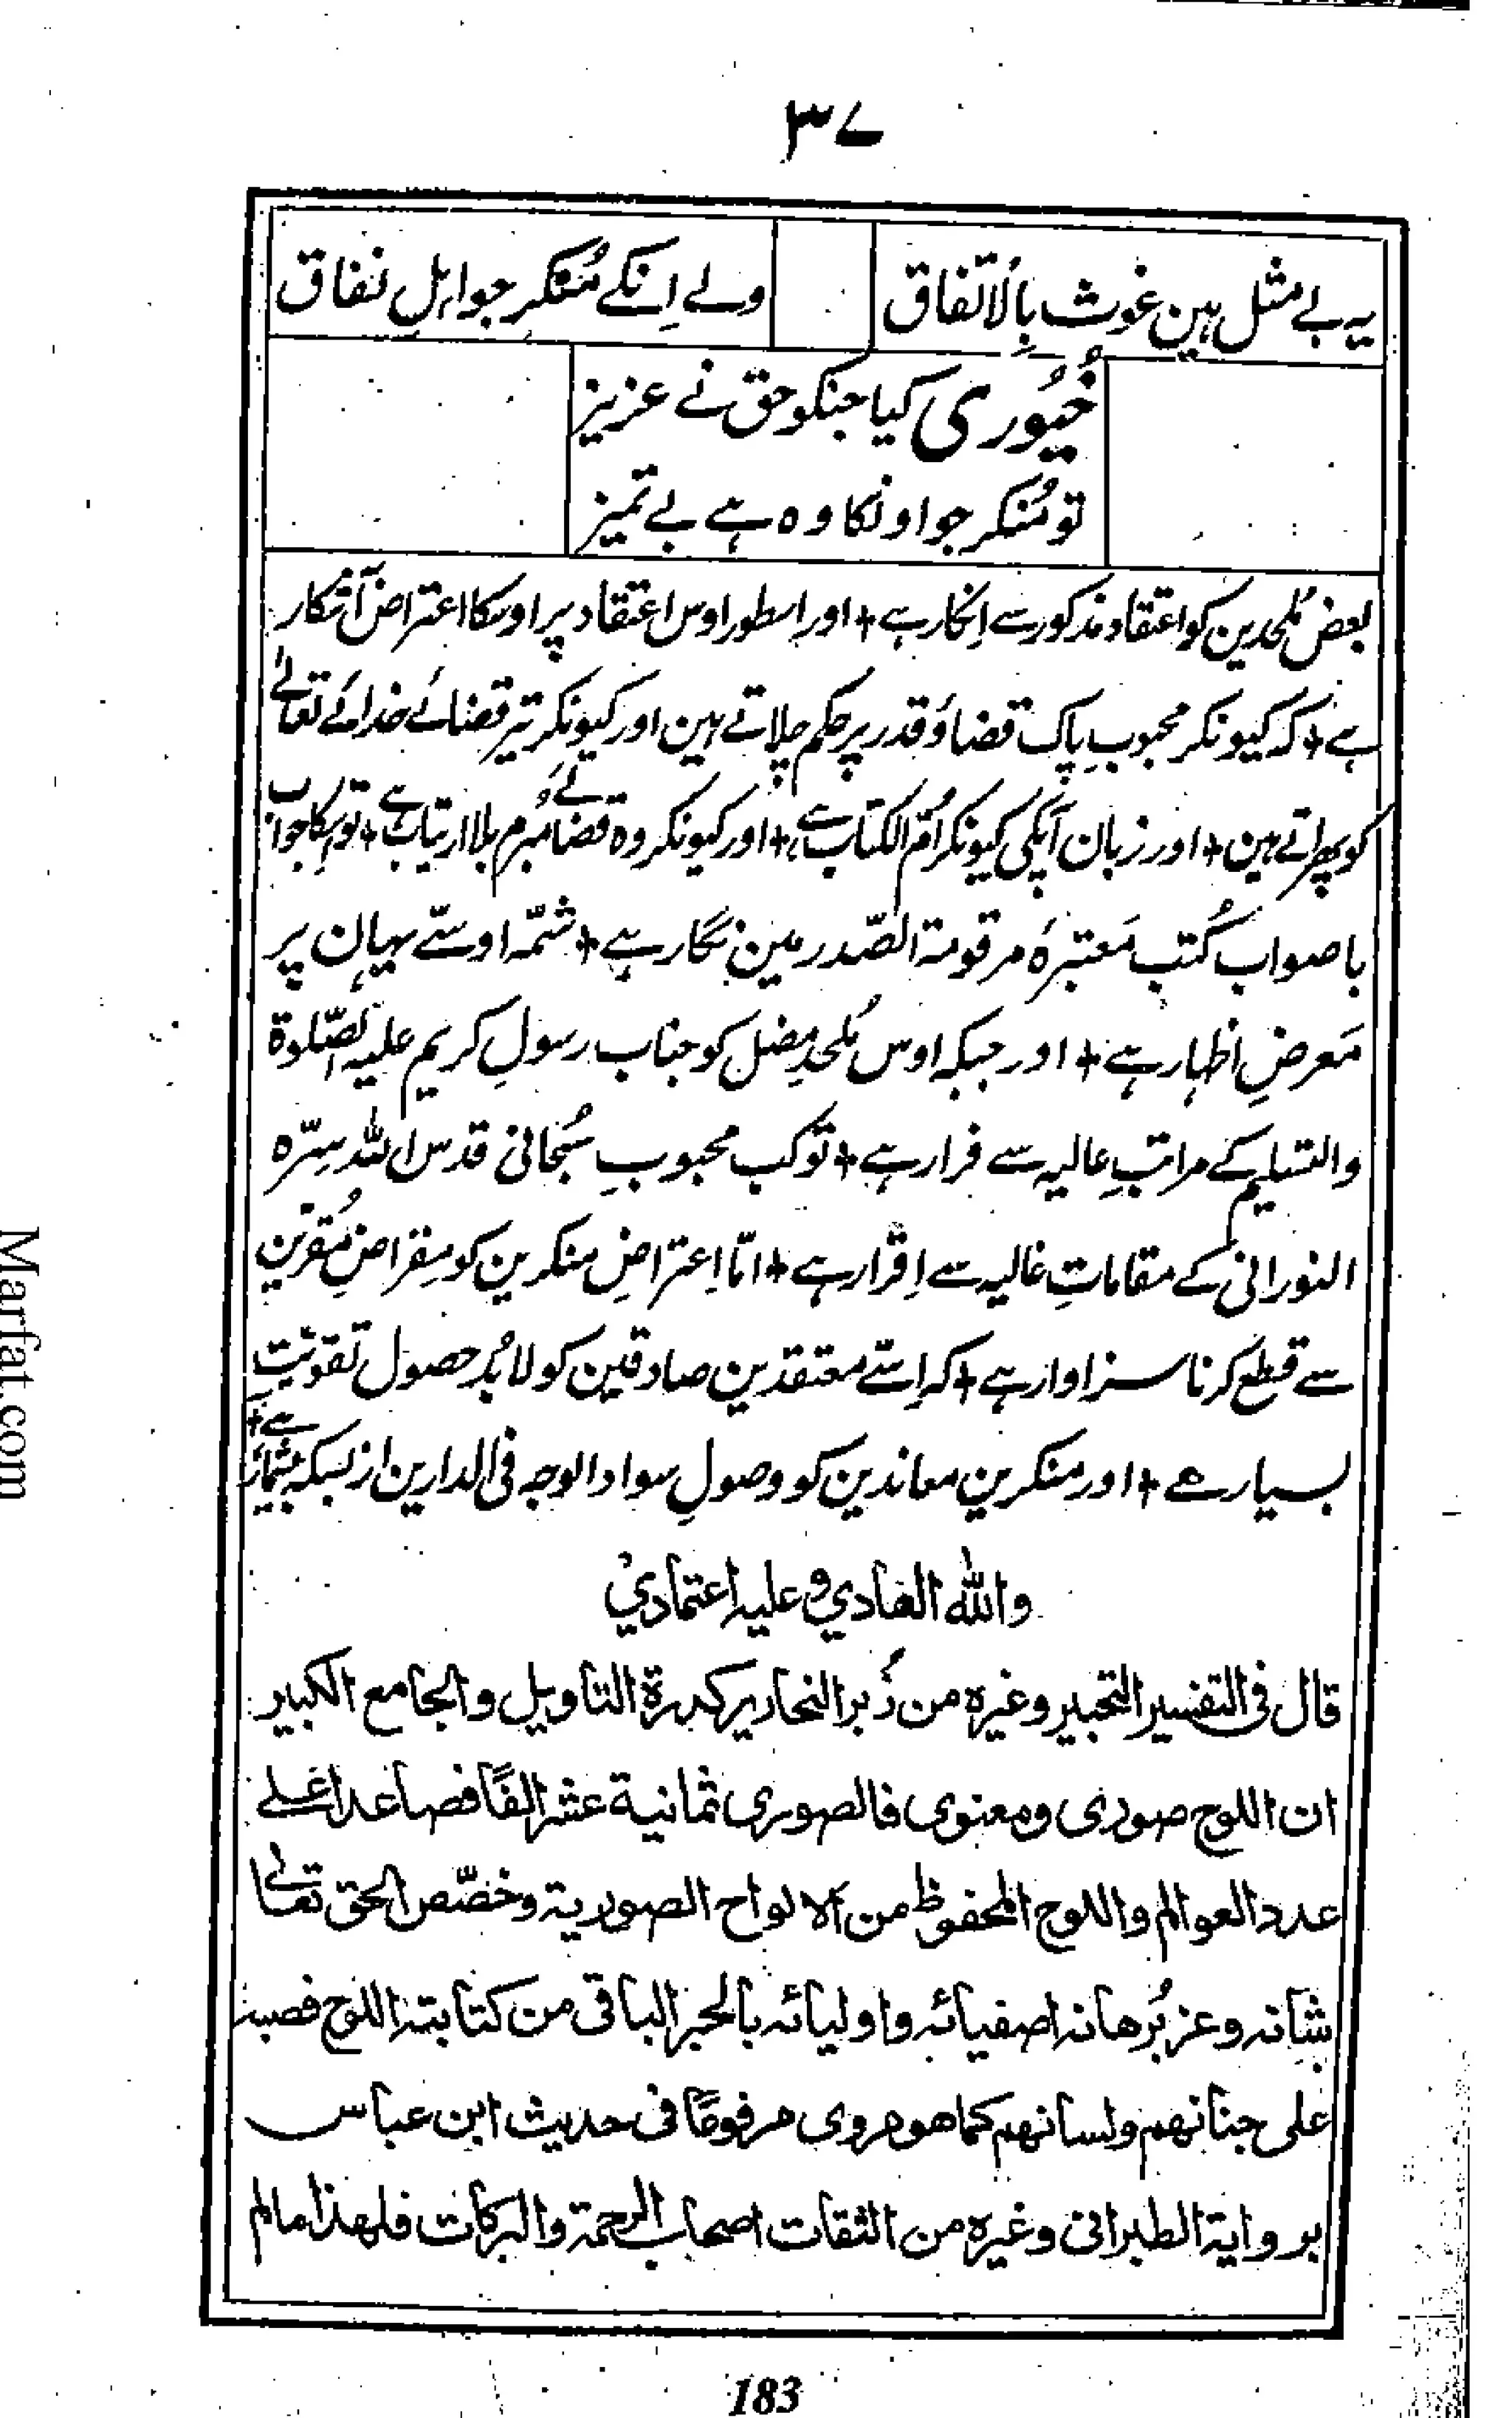 ۳۷
یہ بے مثل ہین غوث بالاتفاق ولے اِنکے مُنکر جو اہلِ نفاق
خُیُوری کیا جنکو حق نے عزیز
تو مُنکر جو اونکا وہ ہے بے تمیز
بعض مُلحدین کو اعتقاد مذکور سے اِنکار ہے + اور اسطور اوس اعتقاد پر اوسکا اعتراض آشکار
ہے + کہ کیونکر محبوبِ پاک قضاؤ قدر پر حکم چلاتے ہین اور کیونکر تیرِ قضائے خدائے تعالےٰ
کو پھراتے ہین + اور زبان آپکی کیونکر اُمّ الکتاب ہے + اور کیونکر وہ قضائے مُبرم بلا ارتیاب ہے + تو اسکا جواب
باصواب کُتب مَعتبرۂ مرقومۃ الصّدر مین نگار ہے + شمّہ اوسّے یہان پر
مَعرضِ اظہار ہے + اور جبکہ اوس مُلحدِ مضل کو جناب رسولِ کریم علیہ الصّلوۃ
والتسلیم کے مراتبِ عالیہ سے فرار ہے + تو کب محبوبِ سُبحانی قدس اللہ سِرّہ
النورانی کے مقاماتِ غالیہ سے اِقرار ہے + امّا اِعتراضِ منکرین کو مِقراضِ مُقرین
سے قطع کرنا سزاوار ہے + کہ اِسّے معتقدین صادقین کو لابُد حصول تقویتِ
بسیار ہے + اور منکرین معاندین کو وصولِ سواد الوجہ فی الدارین از بسکہ بیشمار ہے +
واللہ الهادي و علیہ اعتمادي
قال فی التفسیر التحبیر وغیرہ من زُبر النحاریر کدرۃ التاویل والجامع الکبیر
ان اللوح صوری ومعنوی فالصوری ثمانیۃ عشر الفًا فصاعدا علے
عدد العوالم واللوح المحفوظ من الالواح الصوریۃ وخصّص الحق تعالےٰ
بشانہ وعز بُرهانہ اصفیائہ واولیائہ بالحبر الباقی من کتابتہ اللوح فصبہ
علی جنانهم ولسانهم کما هو مروی مرفوعًا فی حدیث ابن عباس
بروایۃ الطبرانی وغیرہ من الثقات اصحاب الرحمۃ والبرکات فلهذا ما لم
183
Marfat.com